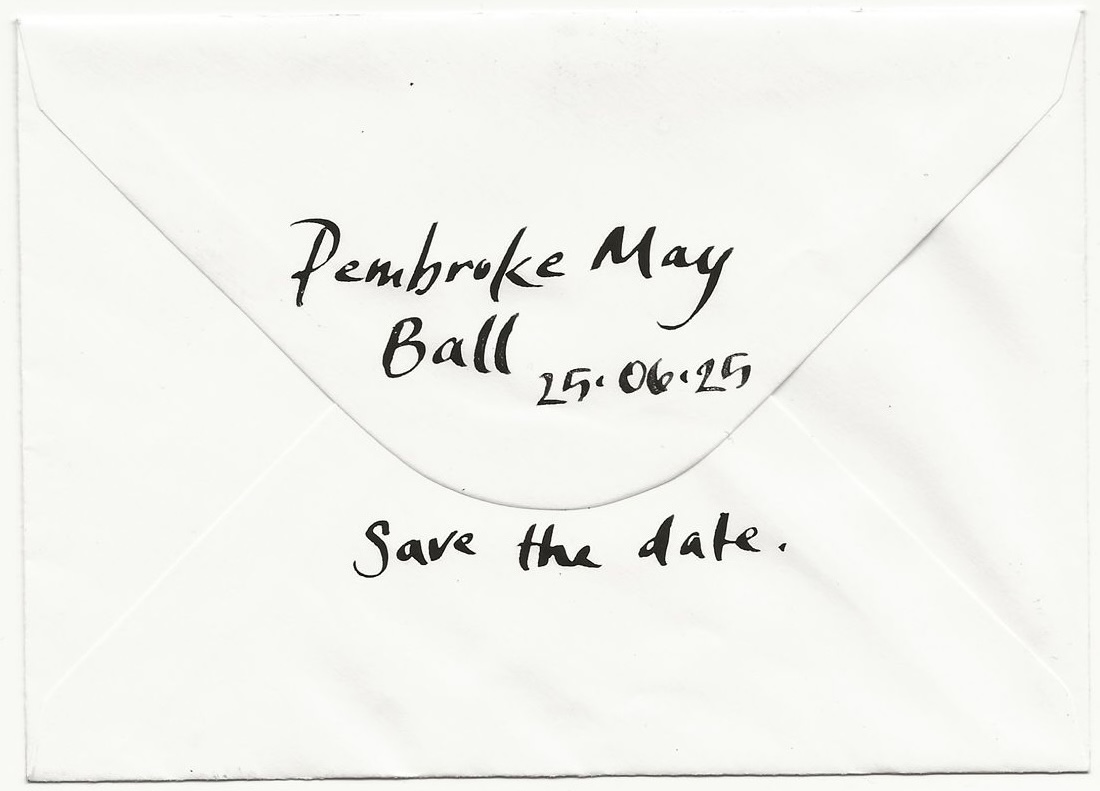 Pembroke May
Ball 25·06·25
Save the date.